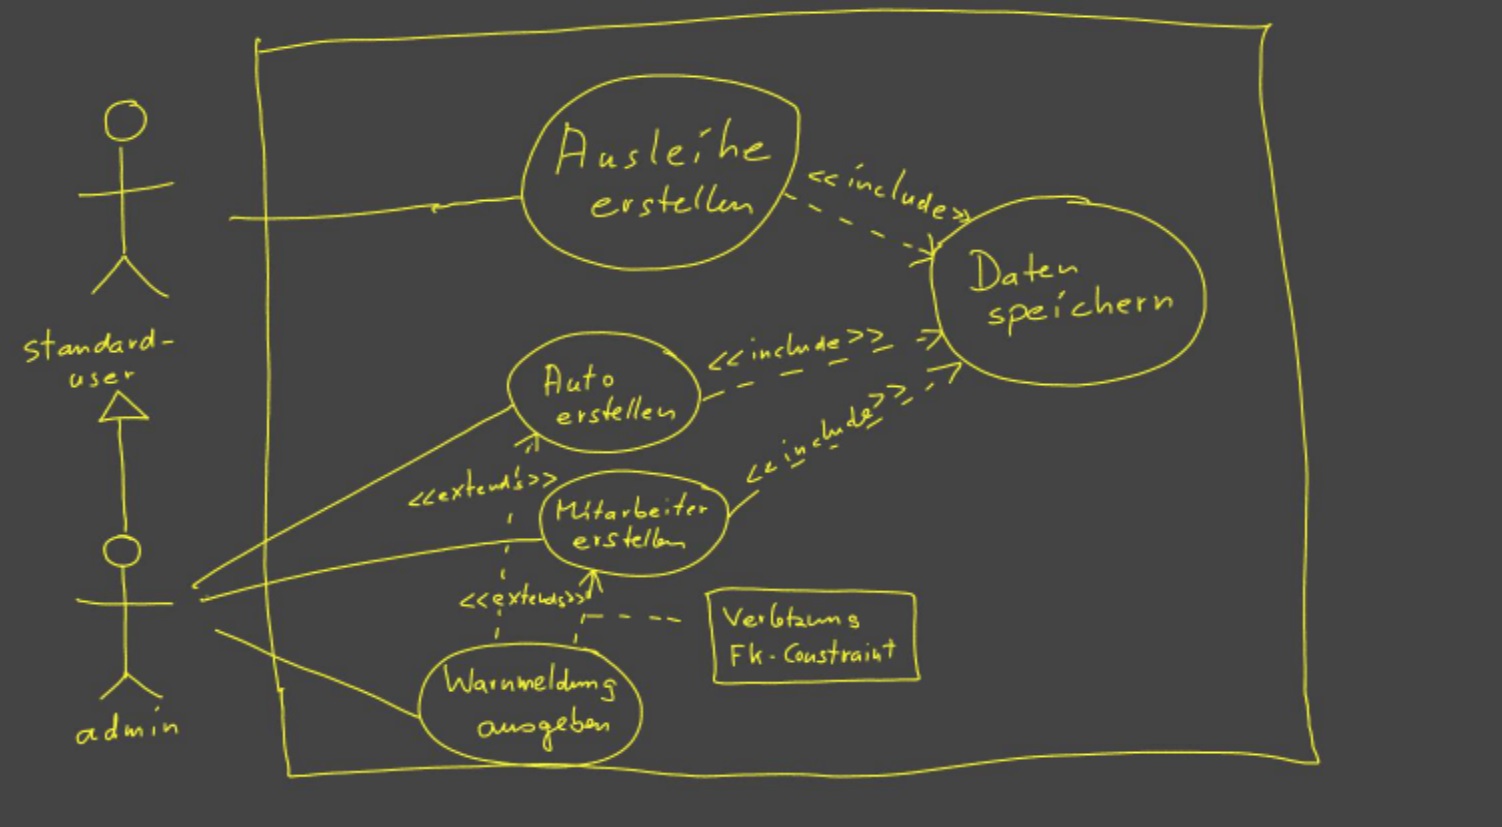 Ausleihe
erstellen
<<include>>
Daten
speichern
standard-
user
Auto
erstellen
<<include>>
<<include>>
<<extends>>
Mitarbeiter
erstellen
<<extends>>
Verletzung
Fk-Constraint
Warnmeldung
ausgeben
admin